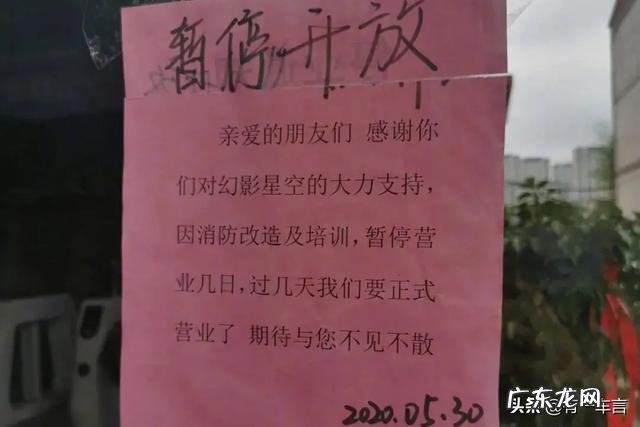 暂停开放
亲爱的朋友们 感谢你
们对幻影星空的大力支持，
因消防改造及培训，暂停营
业几日，过几天我们要正式
营业了 期待与您不见不散
2020.05.30
广东龙网
头条@有一车言